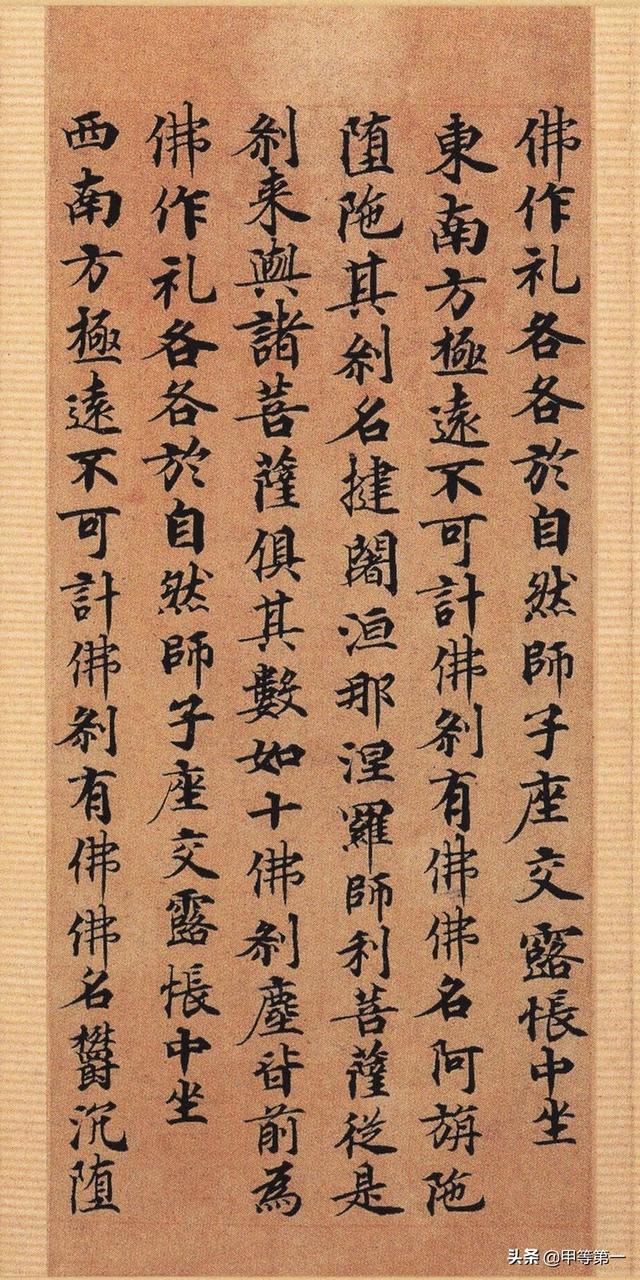 佛作礼各各於自然師子座交露帳中坐
東南方極遠不可計佛刹有佛佛名阿旃陁
堕陁其刹名揵闍洹那涅羅師利菩薩從是
刹来與諸菩薩俱其數如十佛刹塵皆前為
佛作礼各各於自然師子座交露帳中坐
西南方極遠不可計佛刹有佛佛名欝沉堕
头条 @甲等第一